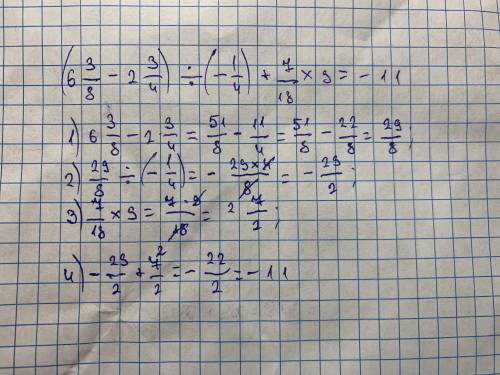 (6 3/8 − 2 3/4) ÷ (− 1/4) + 7/18 × 9 = − 11
1) 6 3/8 − 2 3/4 = 51/8 − 11/4 = 51/8 − 22/8 = 29/8;
2) 29/8 ÷ (− 1/4) = − 29×4/8 = − 29/2;
3) 7/18 × 9 = 7·9/18 2 = 7/2;
4) − 29/2 + 7/2 = − 22/2 = − 11